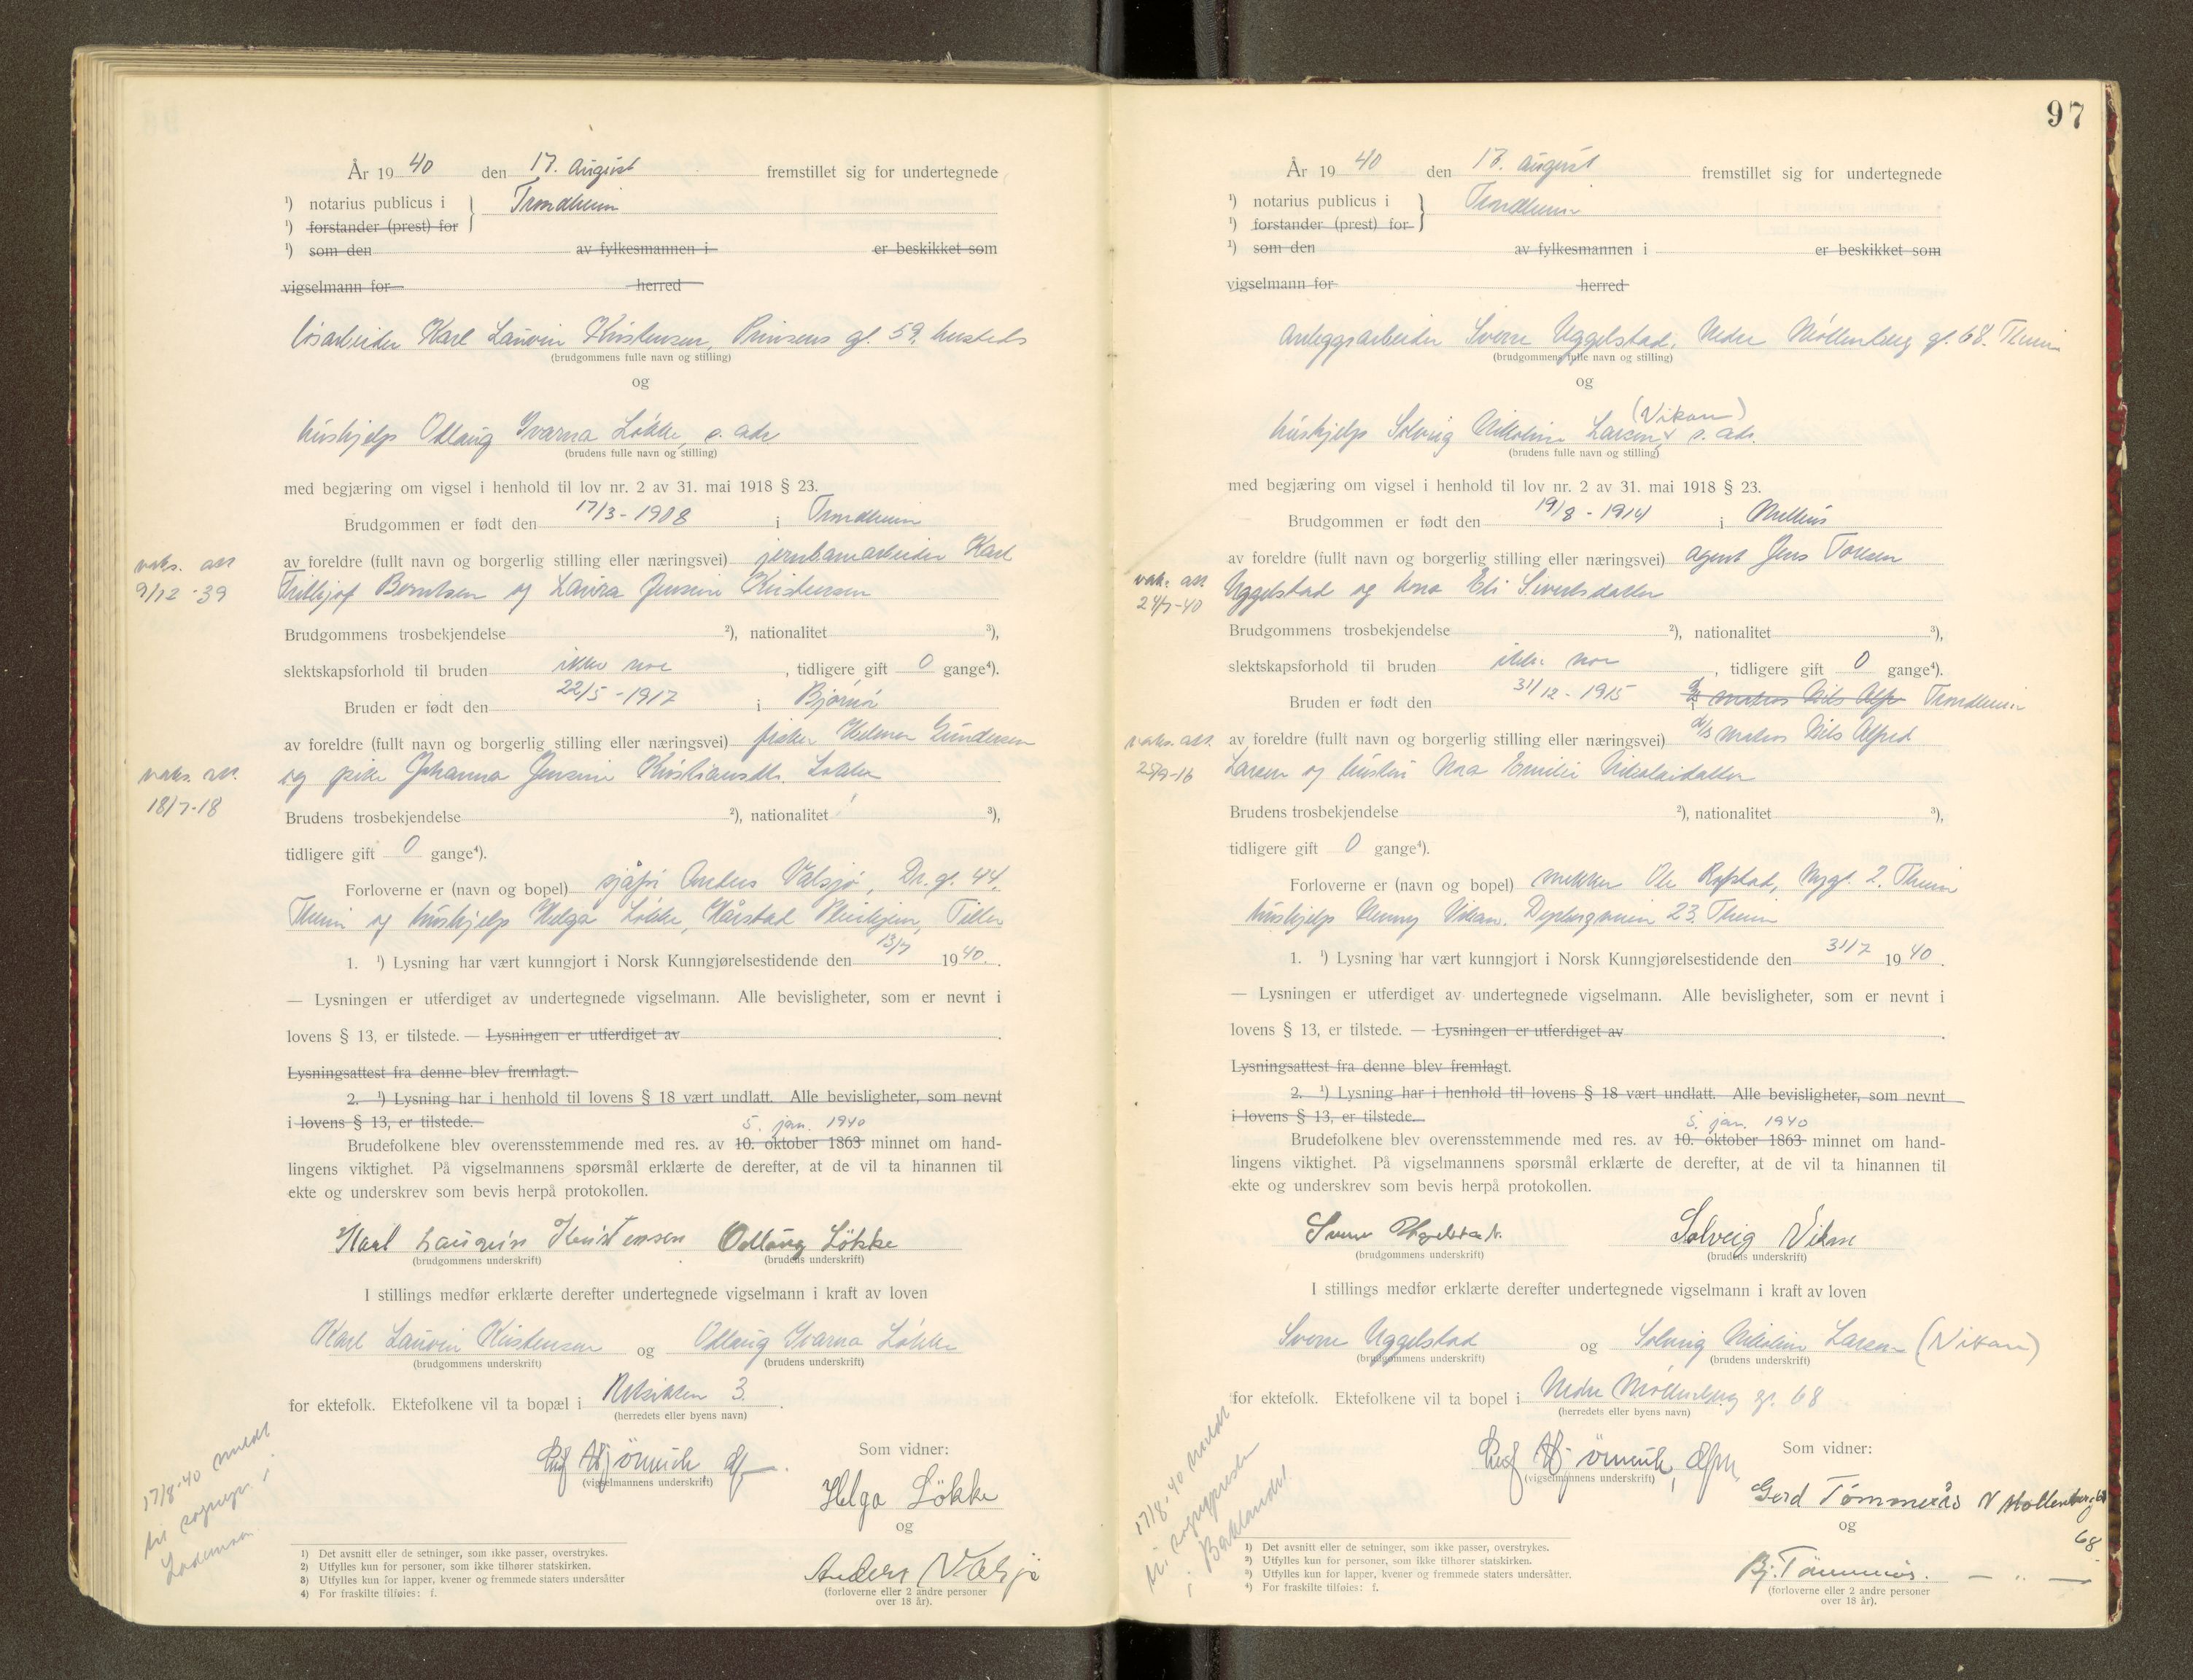 År 19 40 den 17. august fremstillet sig for undertegnede
¹) notarius publicus i } Trondheim
¹) forstander (prest) for
¹) som den av fylkesmannen i er beskikket som
vigselmann for herred
løsarbeider Karl Lauvin Kristensen, Prinsens gt. 59, husteds
(brudgommens fulle navn og stilling)
og
hushjelp Odlaug Ivarna Løkke, s. adr.
(brudens fulle navn og stilling)
med begjæring om vigsel i henhold til lov nr. 2 av 31. mai 1918 § 23.
Brudgommen er født den 17/3 - 1908 i Trondheim
vaks. att. 9/12 - 39
av foreldre (fullt navn og borgerlig stilling eller næringsvei) jernbanearbeider Karl
Frithjof Berntsen og Laura Jensine Kristensen
Brudgommens trosbekjendelse ²), nationalitet ³),
slektskapsforhold til bruden ikke noe, tidligere gift 0 gange⁴).
Bruden er født den 22/5 - 1917 i Bjørnør
av foreldre (fullt navn og borgerlig stilling eller næringsvei) fisker Helmer Gundersen
og pike Johanna Jensine Kristiansdtr. Løkke
vaks. att. 18/7-18
Brudens trosbekjendelse ²), nationalitet ³),
tidligere gift 0 gange⁴).
Forloverne er (navn og bopel) sjåfør Anders Valsjø, Dr. gt. 44,
Theim og hushjelp Helga Løkke, Hårstad Pleiehjem, Tiller
1. ¹) Lysning har vært kunngjort i Norsk Kunngjørelsestidende den 13/7 1940.
— Lysningen er utferdiget av undertegnede vigselmann. Alle bevisligheter, som er nevnt i
lovens § 13, er tilstede. — Lysningen er utferdiget av
Lysningsattest fra denne blev fremlagt.
2. ¹) Lysning har i henhold til lovens § 18 vært undlatt. Alle bevisligheter, som nevnt
i lovens § 13, er tilstede.
5. jan. 1940
Brudefolkene blev overensstemmende med res. av 10. oktober 1863 minnet om hand-
lingens viktighet. På vigselmannens spørsmål erklærte de derefter, at de vil ta hinannen til
ekte og underskrev som bevis herpå protokollen.
Karl Lauvin Kristensen Odlaug Løkke
(brudgommens underskrift) (brudens underskrift)
I stillings medfør erklærte derefter undertegnede vigselmann i kraft av loven
Karl Lauvin Kristensen og Odlaug Ivarna Løkke
(brudgommens underskrift) (brudens underskrift)
for ektefolk. Ektefolkene vil ta bopæl i 3.
(herredets eller byens navn)
(vigselmannens underskrift)
Som vidner:
Helga Løkke
og
Anders Valsjø
(forloverne eller 2 andre personer
over 18 år).
17/8-40 meldt
til sognepr. i
Lademoen
1) Det avsnitt eller de setninger, som ikke passer, overstrykes.
2) Utfylles kun for personer, som ikke tilhører statskirken.
3) Utfylles kun for lapper, kvener og fremmede staters undersåtter
4) For fraskilte tilføies: f.
97
År 19 40 den 17. august fremstillet sig for undertegnede
¹) notarius publicus i } Trondheim
¹) forstander (prest) for
¹) som den av fylkesmannen i er beskikket som
vigselmann for herred
anleggsarbeider Sverre Uggelstad, Nedre Møllenberg gt. 68. Theim
(brudgommens fulle navn og stilling)
og
(Vikan)
hushjelp Solveig Nikoline Larsen, s. adr.
(brudens fulle navn og stilling)
med begjæring om vigsel i henhold til lov nr. 2 av 31. mai 1918 § 23.
Brudgommen er født den 19/8 - 1914 i Melhus
av foreldre (fullt navn og borgerlig stilling eller næringsvei) agent Jens Toresen
vaks. att. 24/7-40
Uggelstad og kona Eli Sivertsdatter
Brudgommens trosbekjendelse ²), nationalitet ³),
slektskapsforhold til bruden ikke noe, tidligere gift 0 gange⁴).
Bruden er født den 31/12 - 1915 i matros Nils Alfr Trondheim
av foreldre (fullt navn og borgerlig stilling eller næringsvei) d/s matros Nils Alfred
vaks. att. 25/9-16
Larsen og hustru Nora Emilie Nikolaidatter
Brudens trosbekjendelse ²), nationalitet ³),
tidligere gift 0 gange⁴).
Forloverne er (navn og bopel) snekker Ole Rofstad, Nygt. 2. Theim
hushjelp Henny Vikan. Dyrborgveien 23. Theim
1. ¹) Lysning har vært kunngjort i Norsk Kunngjørelsestidende den 31/7 1940.
— Lysningen er utferdiget av undertegnede vigselmann. Alle bevisligheter, som er nevnt i
lovens § 13, er tilstede. — Lysningen er utferdiget av
Lysningsattest fra denne blev fremlagt.
2. ¹) Lysning har i henhold til lovens § 18 vært undlatt. Alle bevisligheter, som nevnt
i lovens § 13, er tilstede.
5. jan. 1940
Brudefolkene blev overensstemmende med res. av 10. oktober 1863 minnet om hand-
lingens viktighet. På vigselmannens spørsmål erklærte de derefter, at de vil ta hinannen til
ekte og underskrev som bevis herpå protokollen.
Sverre Uggelstad. Solveig Vikan
(brudgommens underskrift) (brudens underskrift)
I stillings medfør erklærte derefter undertegnede vigselmann i kraft av loven
Sverre Uggelstad og Solveig Nikoline Larsen (Vikan)
(brudgommens underskrift) (brudens underskrift)
for ektefolk. Ektefolkene vil ta bopel i Nedre Møllenberg gt. 68
(herredets eller byens navn)
(vigselmannens underskrift)
Som vidner:
Gerd Tømmerås N Møllenberg
68
og
Bj. Tømmerås. — " —
(forloverne eller 2 andre personer
over 18 år).
17/8-40 meldt
til sognepresten
i Baklandet
¹) Det avsnitt eller de setninger, som ikke passer, overstrykes.
²) Utfylles kun for personer, som ikke tilhører statskirken.
³) Utfylles kun for lapper, kvener og fremmede staters undersåtter.
⁴) For fraskilte tilføies: f.